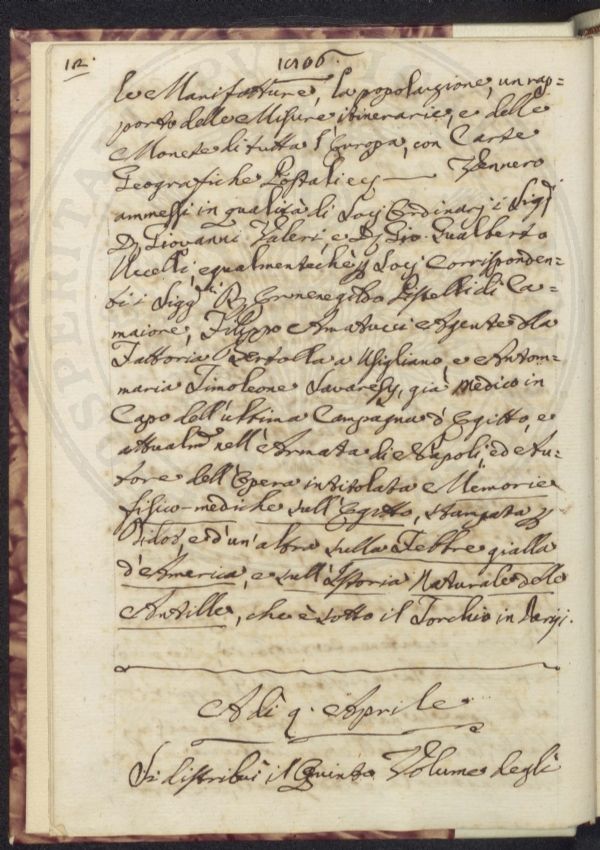 12.
1806.
le Manifatture, la popolazione, un rap=
porto delle Misure itinerarie, e delle
Monete di tutta l'Europa, con Carte
Geografiche Postali &c. Vennero
ammessi in qualità di Socj Ordinarj i Sigri
Dr Giovanni Valeri, e Dr Gio. Gualberto
Uccelli, egualmente chè pr Socj Corrisponden=
ti i Siggri Ermenegildo Pistelli di Ca=
maiore, Filippo Amatucci Agente della
Fattoria a Usigliano, e Antom=
maria Timoleone Savaresy, già Medico in
Capo dell'ultima Campagna d'Egitto, e
attualmte nell'Armata di Napoli, ed Au=
tore dell'Opera intitolata Memorie
fisico-mediche sull'Egitto, stampata pr
Didot, e d'un'altra sulla Febbre gialla
d'America, e sull'Istoria Naturale delle
Antille, che è sotto il Torchio in Parigi.
Adì 9. Aprile
Si distribuì il Quinto Volume degli